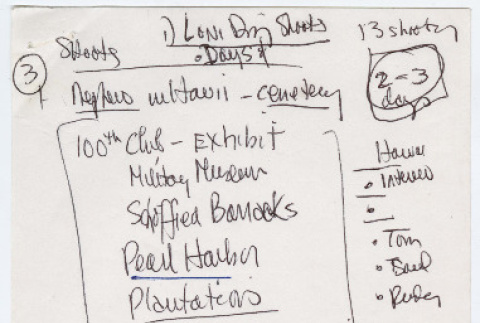 1) Loni Ding Shoots
Shoots
• Days
13 shooting
2-3
days
3
Nephew in Hawii - cemetery
100th Club - Exhibit
Military Museum
Schffied Barracks
Pearl Harbor
Plantations
• Interview
•
• Tom